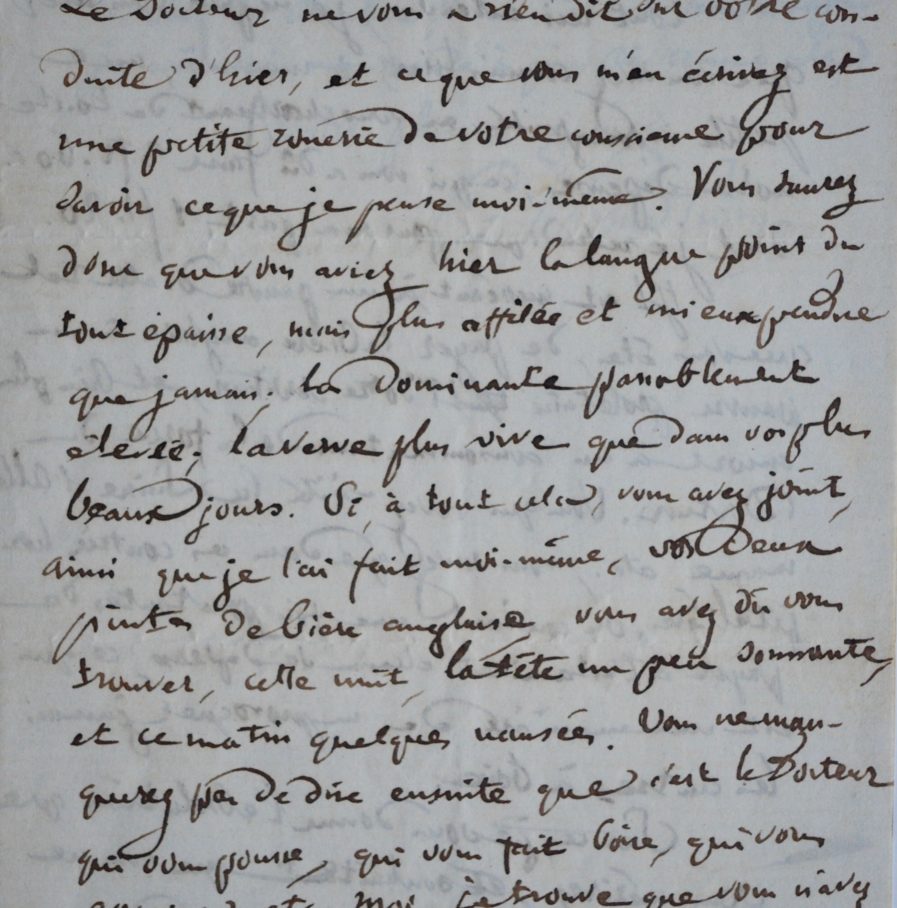 Le Docteur ne vous a rien dit sur votre con-
duite d'hier, et ce que vous m'en écrivez est
une petite rouerie de votre conscience pour
savoir ce que je pense moi-même. Vous saurez
donc que vous aviez hier la langue point du
tout épaisse, mais plus affilée et mieux pendue
que jamais; la dominante passablement
élevée; la verve plus vive que dans vos plus
beaux jours. Si, à tout cela, vous avez joint,
ainsi que je l'ai fait moi-même, vos deux
pintes de bière anglaise, vous avez dû vous
trouver, cette nuit, la tête un peu sonnante,
et ce matin quelques nausées. Vous ne man-
querez pas de dire ensuite que c'est le Docteur
qui vous pousse, qui vous fait boire, qui vous
Moi, je trouve que vous n'avez